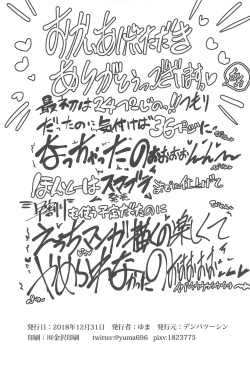 おかいあげいただき
ありがとうございます!!
最初は24ページの!!つもり
だったのに気付けば36ページに
なっちゃったのぉぉぉぉんんん〜
ほんとーは スマブラ までに仕上げて
早割も使う予定だったのに
えっちマンガ描くの楽しくて
やめられなかったの
発行日：2018年12月31日　発行者：ゆま　発行元：デンパツーシン
印刷：㈲金沢印刷　twitter@yuma696　pixv:1823775